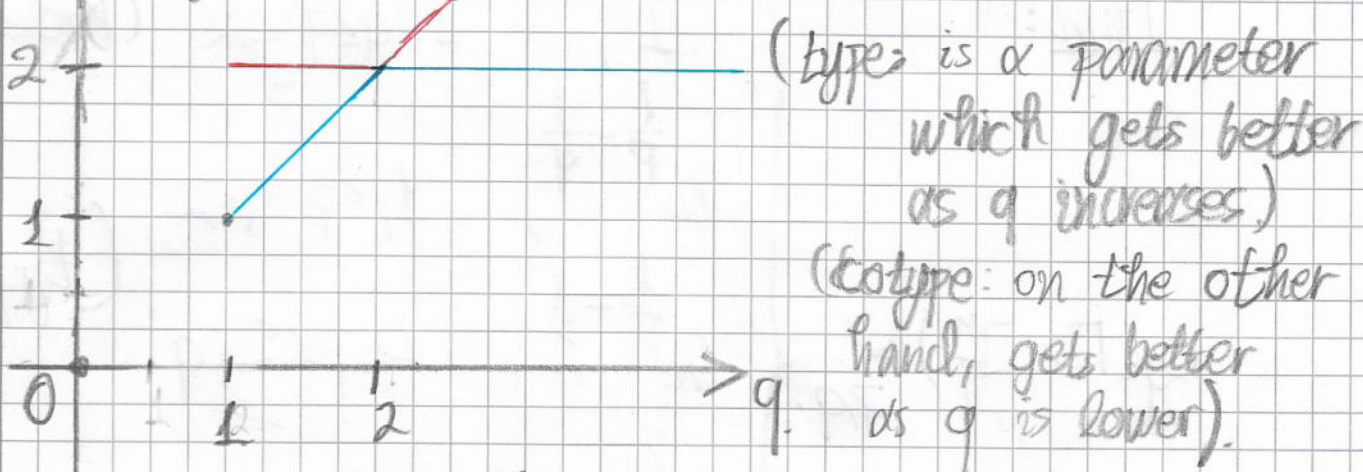 2 (type: is a parameter
which gets better
1 as q increases.)
(cotype: on the other
hand, gets better
0 1 2 q. as q is lower).